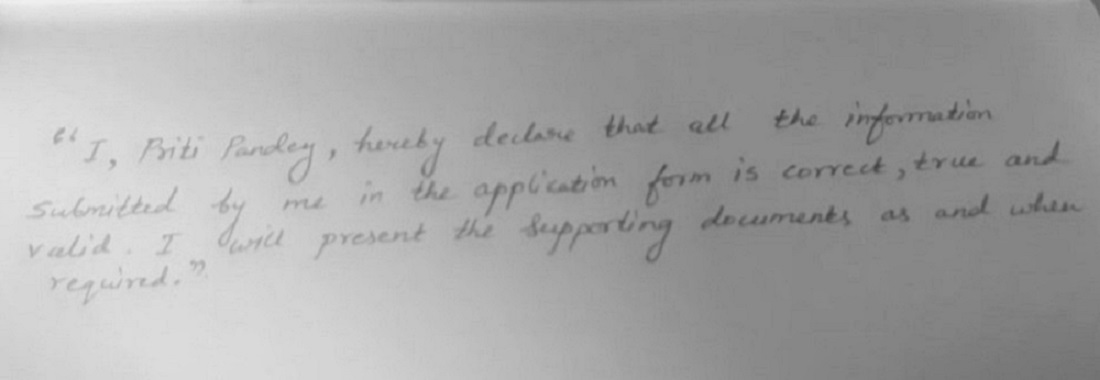 "I, Priti Pandey, hereby declare that all the information
submitted by me in the application form is correct, true and
valid. I will present the supporting documents as and when
required."